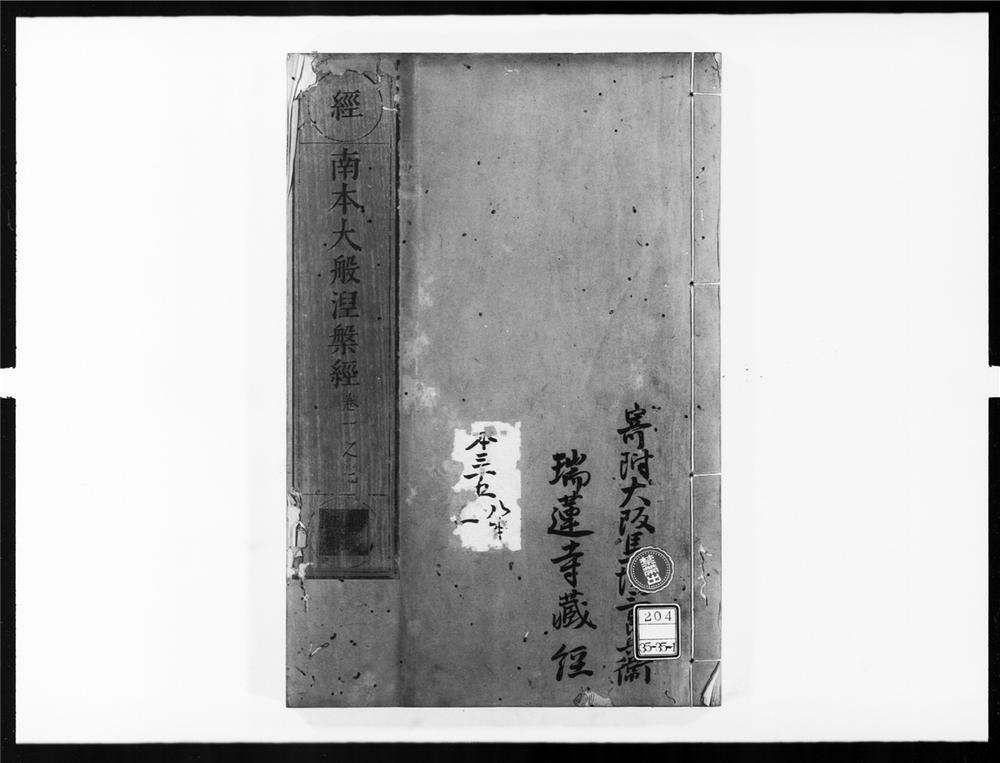 寄附大阪
瑞蓮寺藏經
本三五八
一
經
南本大般涅槃經 卷一之三
禁帶出
204
35-35-1